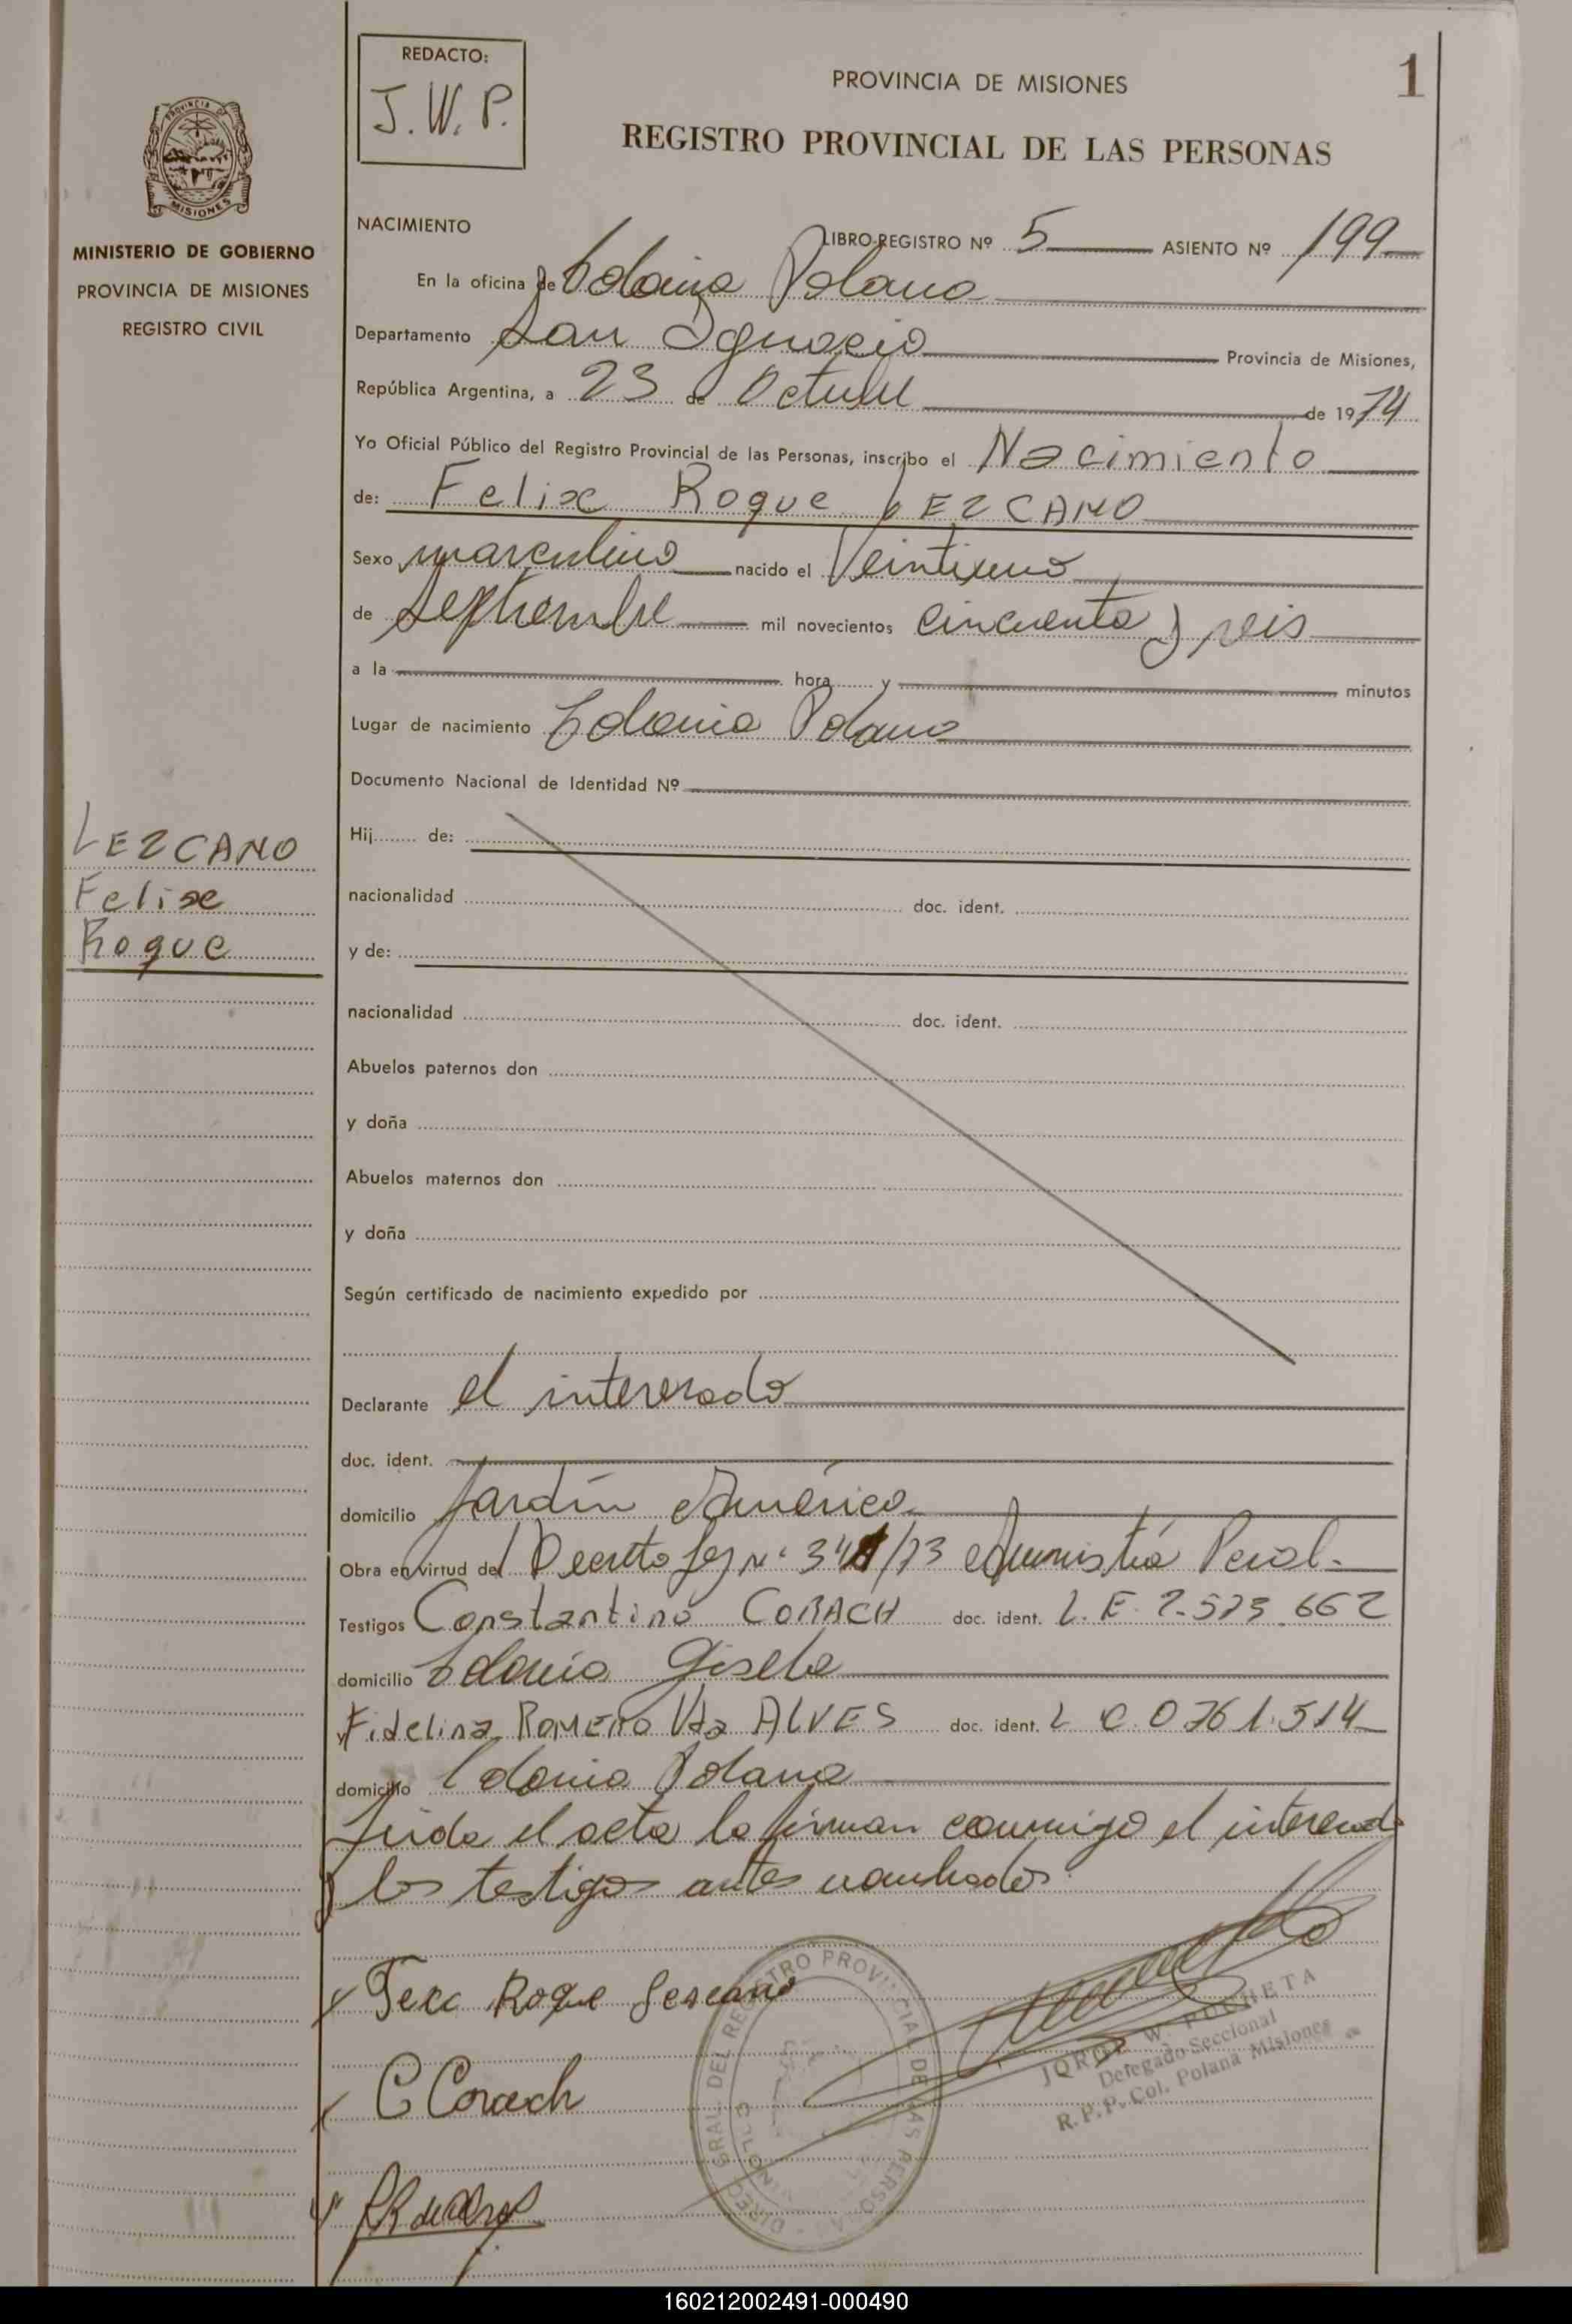 REDACTO:
J. W. P.
1
PROVINCIA DE MISIONES
REGISTRO PROVINCIAL DE LAS PERSONAS
PROVINCIA DE
MISIONES
MINISTERIO DE GOBIERNO
PROVINCIA DE MISIONES
REGISTRO CIVIL
NACIMIENTO
LIBRO-REGISTRO Nº 5 ASIENTO Nº 199
En la oficina de Colonia Polana
Departamento San Ignacio Provincia de Misiones,
República Argentina, a 23 de Octubre de 1974
Yo Oficial Público del Registro Provincial de las Personas, inscribo el Nacimiento
de: Felix Roque LEZCANO
Sexo masculino nacido el Veintiuno
de Septiembre mil novecientos cincuenta y seis
a la hora y minutos
Lugar de nacimiento Colonia Polana
Documento Nacional de Identidad Nº
LEZCANO
Felix
Roque
Hij de:
nacionalidad doc. ident.
y de:
nacionalidad doc. ident.
Abuelos paternos don
y doña
Abuelos maternos don
y doña
Según certificado de nacimiento expedido por
Declarante el interesado
doc. ident.
domicilio Jardín América
Obra en virtud del Decreto Ley Nº /73
Testigos Constantino CORACH doc. ident. L. E. 7.573.662
domicilio Colonia Gisela
y Fidelina ROMERO Vda ALVES doc. ident. L C. 0 761.514
domicilio Colonia Polana
Leida el acta la firman conmigo el interesado
y los testigos antes nombrados
Roque Lescano
C Corach
JORGE W. PUCHETA
Delegado Seccional
R. P. P. Col. Polana Misiones
160212002491-000490